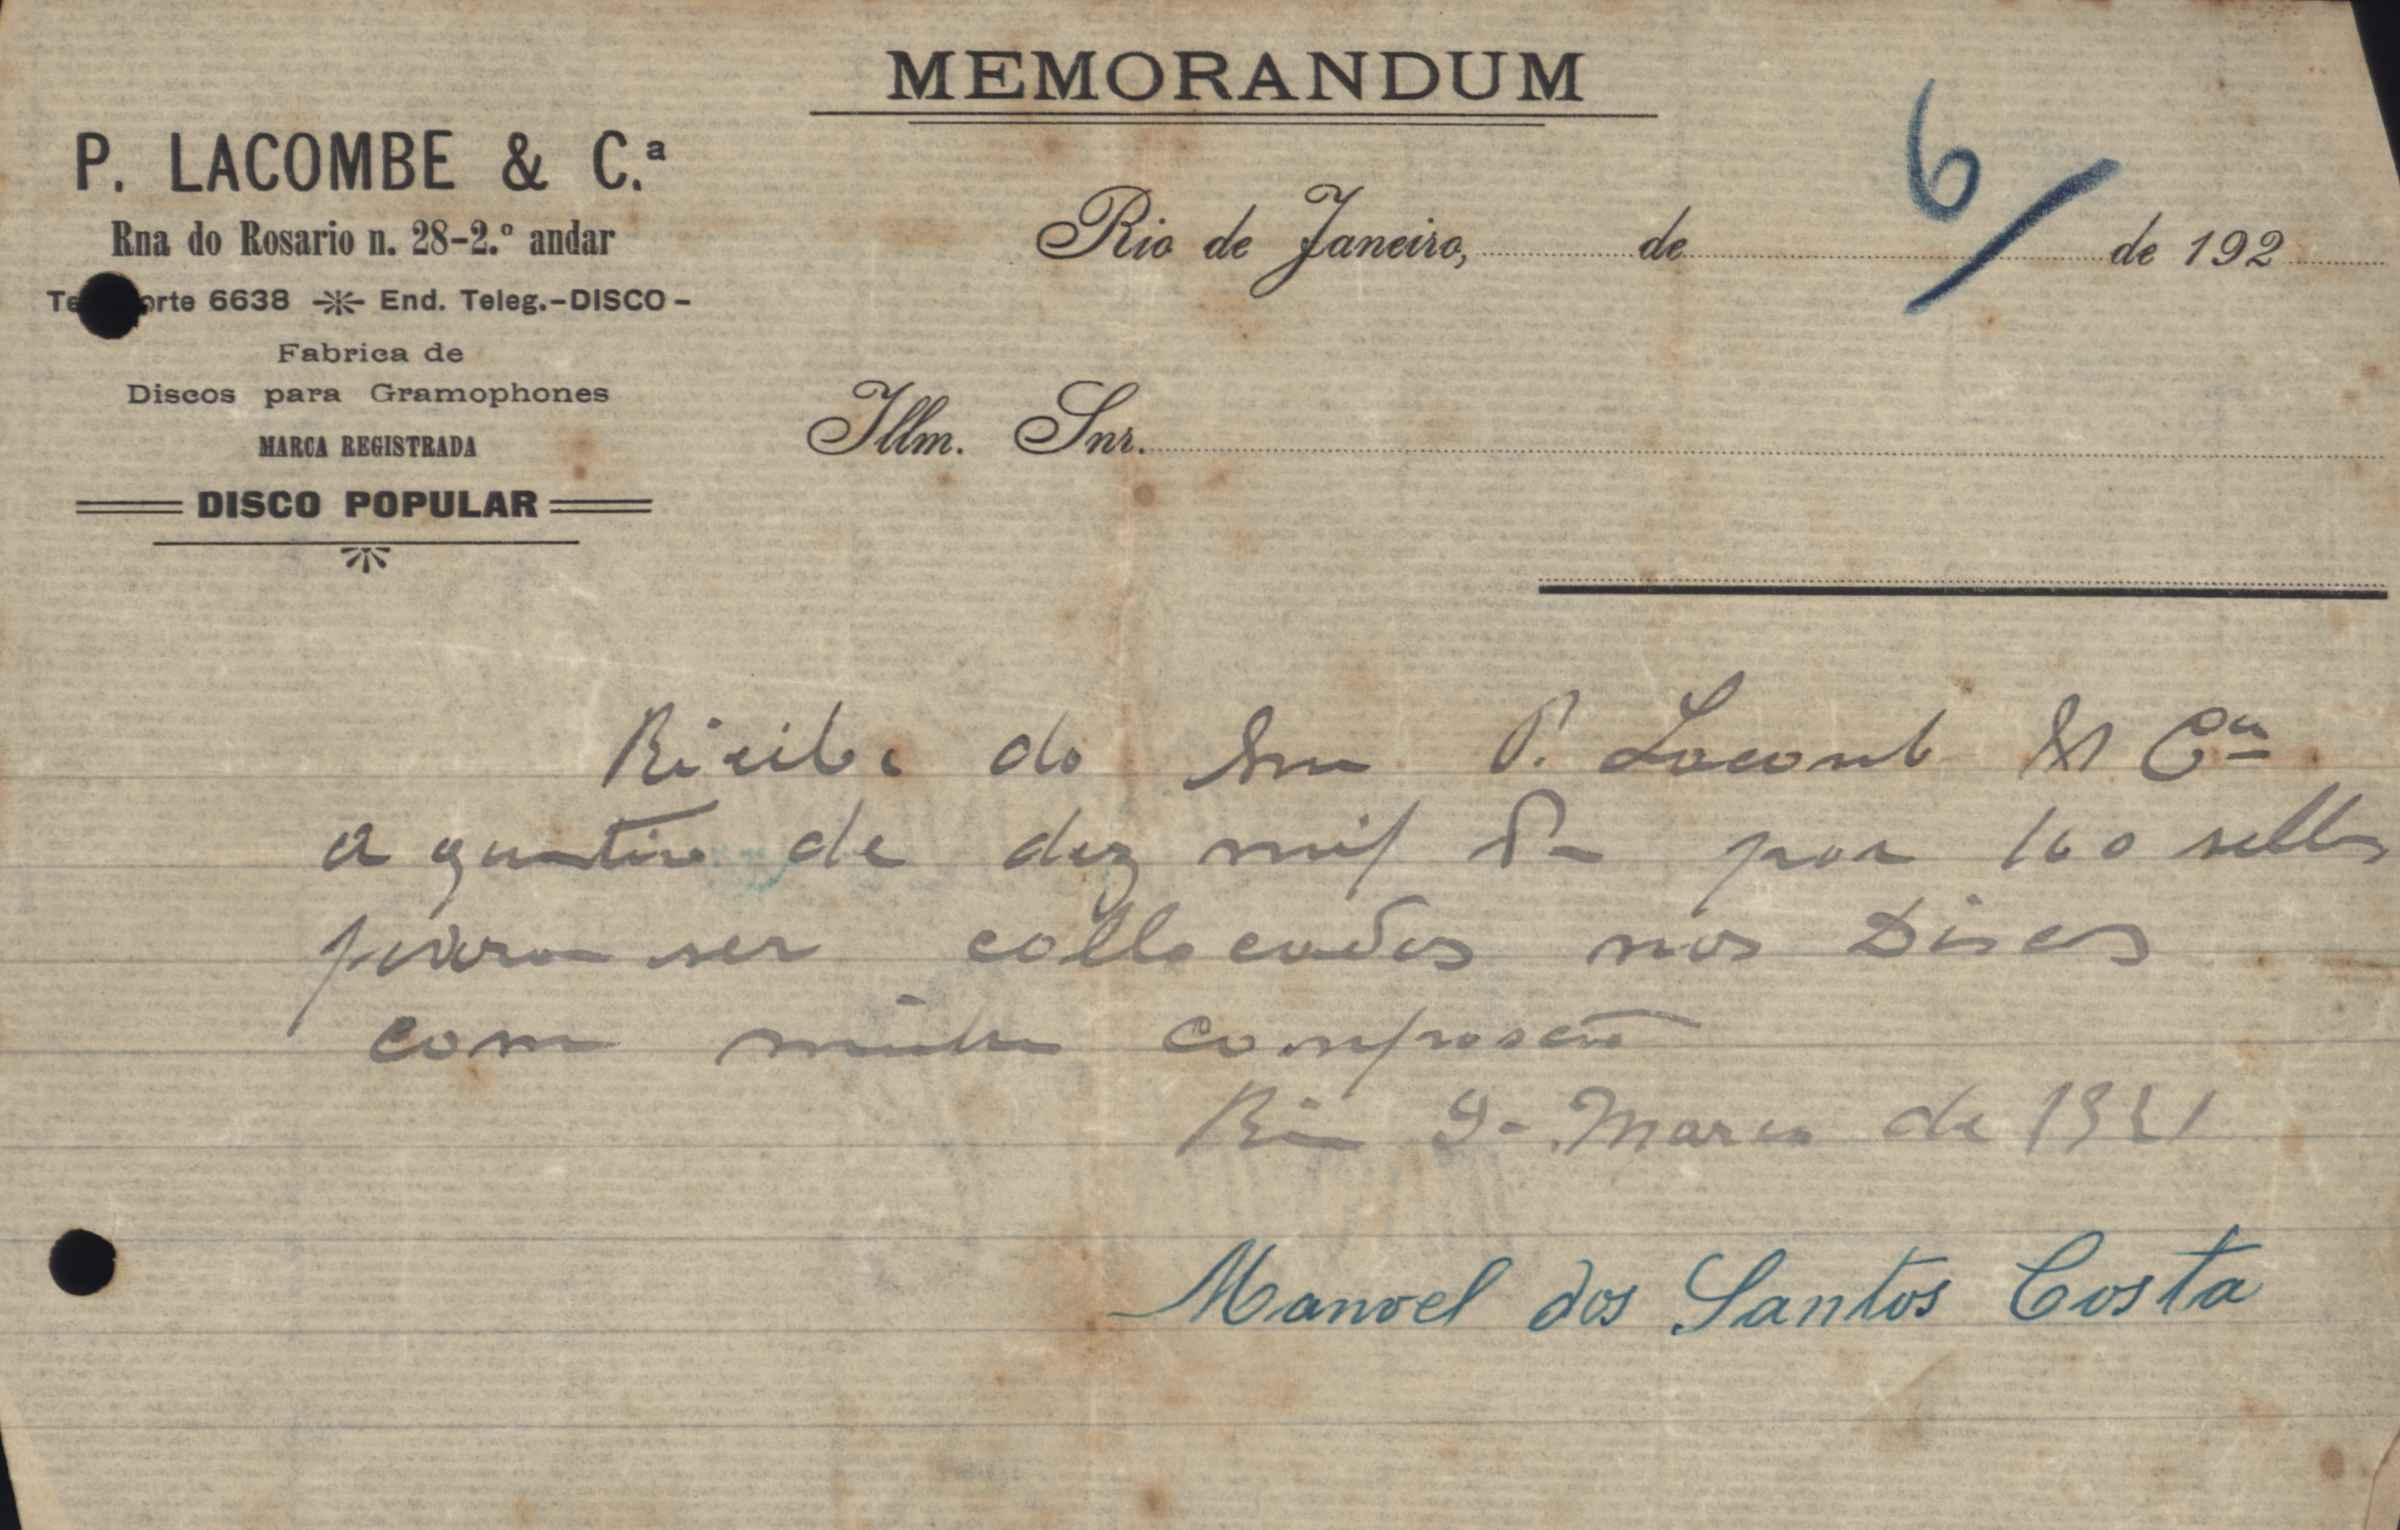 MEMORANDUM
P. LACOMBE & C.ª
Rna do Rosario n. 28-2.º andar
Te orte 6638 End. Teleg.-DISCO-
Fabrica de
Discos para Gramophones
MARCA REGISTRADA
DISCO POPULAR
6/
Rio de Janeiro, de de 192
Illm. Snr.
do Snr P. Lacomb & Cia
a quantia de dez mil por 100 sellos
para ser collocados nos Discos
com minha
Rio 9- Março de 1921
Manoel dos Santos Costa